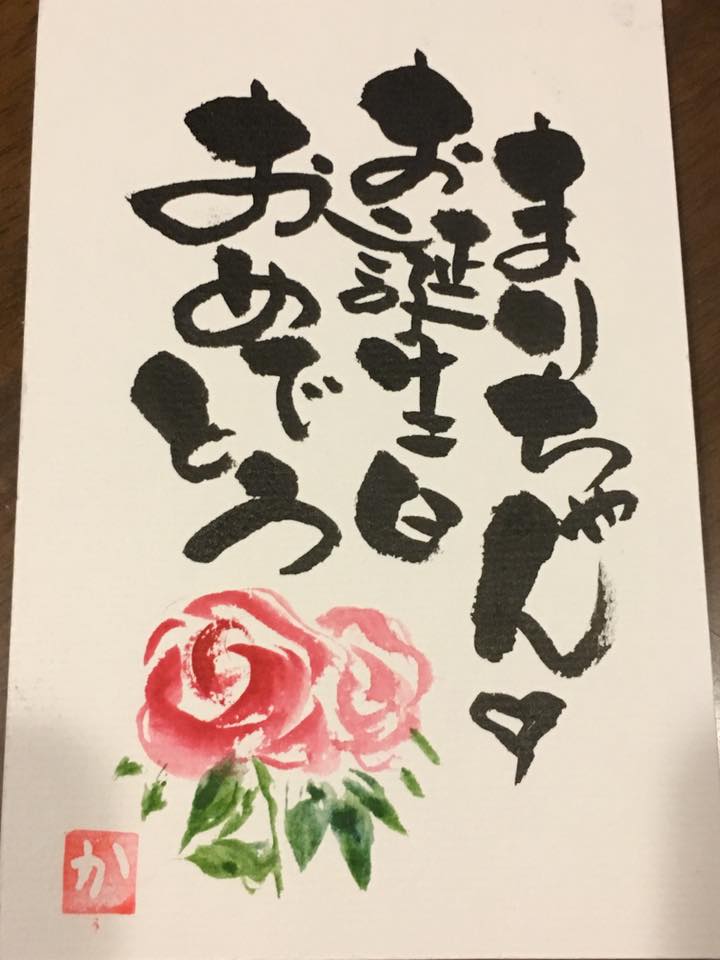 まりちゃん♡
お誕生日
おめでとう
か